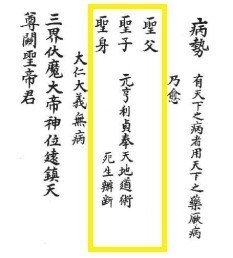 病勢 有天下之病者用天下之藥厥病
乃愈
聖父
聖子 元亨利貞奉天地道術
聖身 死生辦斷
大仁大義無病
三界伏魔大帝神位遠鎮天
尊關聖帝君